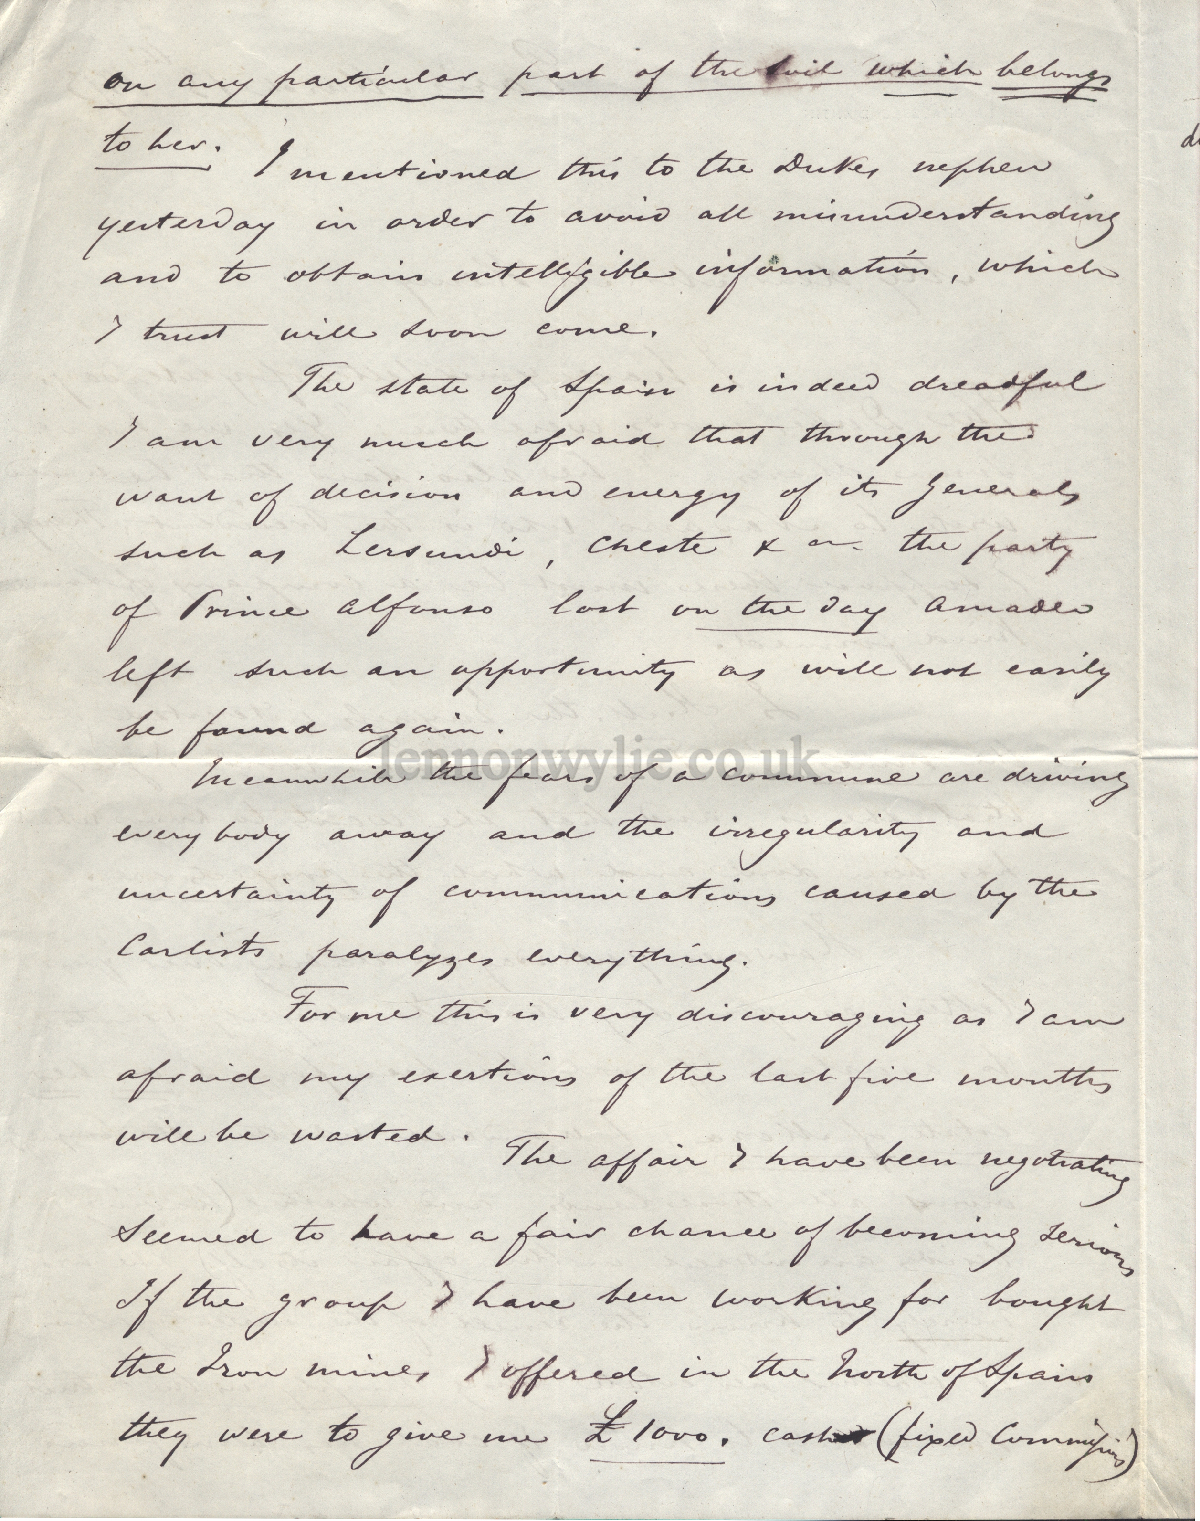 on any particular part of the soil which belongs
to her. I mentioned this to the Dukes nephew
yesterday in order to avoid all misunderstanding
and to obtain intelligible information, which
I trust will soon come.
The state of Spain is indeed dreadful
I am very much afraid that through the
want of decision and energy of its Generals
such as Lersundi, Cheste & a. the party
of Prince Alfonso lost on the day Amadeo
left such an opportunity as will not easily
be found again.
lennonwylie.co.uk
Meanwhile the fears of a commune are driving
everybody away and the irregularity and
uncertainty of communications caused by the
Carlists paralyzes everything.
For me this is very discouraging as I am
afraid my exertions of the last five months
will be wasted. The affair I have been negotiating
seemed to have a fair chance of becoming serious
If the group I have been working for bought
the Iron mines I offered in the North of Spain
they were to give me £1000. cash (fixed Commission)